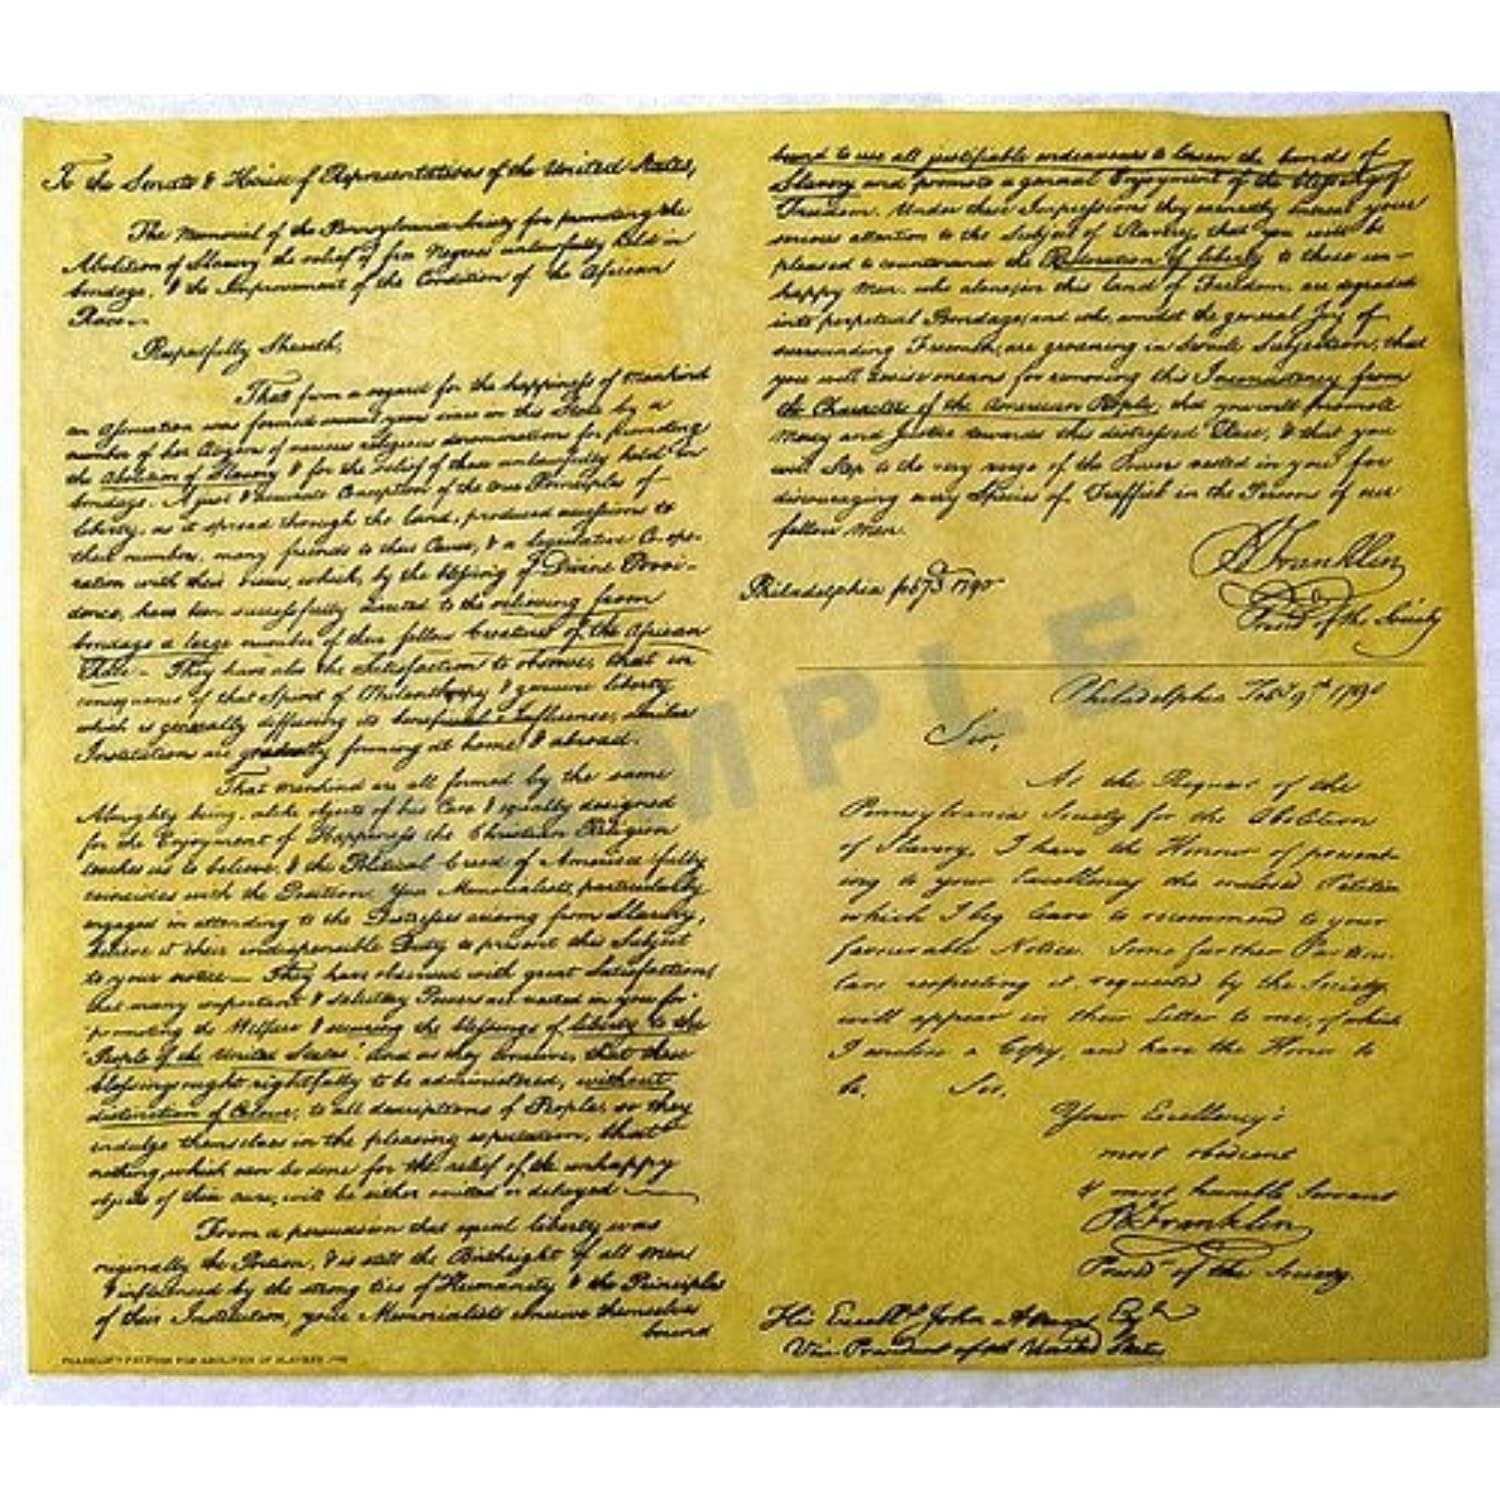 To the Senate & House of Representatives of the United States,
The Memorial of the Pennsylvania Society for promoting the
Abolition of Slavery the relief of free Negroes unlawfully held in
bondage, & the Improvement of the Condition of the African
Race—
Respectfully Sheweth,
That from a regard for the happiness of Mankind
an Association was formed several years since in this State by a
number of her Citizens of various religious denominations for promoting
the Abolition of Slavery & for the relief of those unlawfully held in
bondage. A just & accurate Conception of the true Principles of
liberty, as it spread through the land, produced accessions to
their numbers, many friends to their Cause, & a legislative Co-ope-
ration with their views, which, by the blessing of Divine Provi-
dence, have been successfully directed to the relieving from
bondage a large number of their fellow Creatures of the African
Race— They have also the Satisfaction to observe, that in
consequence of that Spirit of Philanthropy & genuine liberty
which is generally diffusing its beneficial Influence, similar
Institutions are gradually forming at home & abroad.
That mankind are all formed by the same
Almighty being, alike objects of his Care & equally designed
for the Enjoyment of Happiness the Christian Religion
teaches us to believe, & the Political Creed of America fully
coincides with the Position. Your Memorialists, particularly
engaged in attending to the Distresses arising from Slavery,
believe it their indispensible Duty to present this Subject
to your notice— They have observed with great Satisfaction,
that many important & salutary Powers are vested in you for
"promoting the Welfare & securing the blessings of liberty to the
"People of the United States." And as they conceive, that these
blessings ought rightfully to be administered, without
distinction of Colour, to all descriptions of People, so they
indulge themselves in the pleasing expectation, that
nothing, which can be done for the relief of the unhappy
objects of their care, will be either omitted or delayed—
From a persuasion that equal liberty was
originally the Portion, & is still the Birthright of all men
& influenced by the strong ties of Humanity & the Principles
of their Institution, your Memorialists conceive themselves
bound
FRANKLIN'S PETITION FOR ABOLITION OF SLAVERY, 1790
bound to use all justifiable endeavours to loosen the bands of
Slavery and promote a general Enjoyment of the blessings of
Freedom. Under these Impressions they earnestly intreat your
serious attention to the Subject of Slavery, that you will be
pleased to countenance the Restoration of liberty to those un-
happy Men, who alone, in this land of Freedom, are degraded
into perpetual Bondage, and who, amidst the general Joy of
surrounding Freemen, are groaning in Servile Subjection, that
you will devise means for removing this Inconsistency from
the Character of the American People, that you will promote
Mercy and Justice towards this distressed Race, & that you
will Step to the very verge of the Powers vested in you for
discouraging every Species of Traffick in the Persons of our
fellow Men.
B Franklin
Philadelphia feby 3d 1790
Presidt of the Society
Philadelphia Feby 9th 1790
Sir,
At the Request of the
Pennsylvania Society for the Abolition
of Slavery, I have the Honour of present-
ing to your Excellency the enclosed Petition
which I beg leave to recommend to your
favourable Notice. Some further Particu-
lars respecting it, requested by the Society,
will appear in their Letter to me, of which
I enclose a Copy, and have the Honor to
be, Sir,
Your Excellency's
most obedient
& most humble Servant
B Franklin
Presidt of the Society.
His Excelly John Adams Esqr
Vice President of the United States
SAMPLE